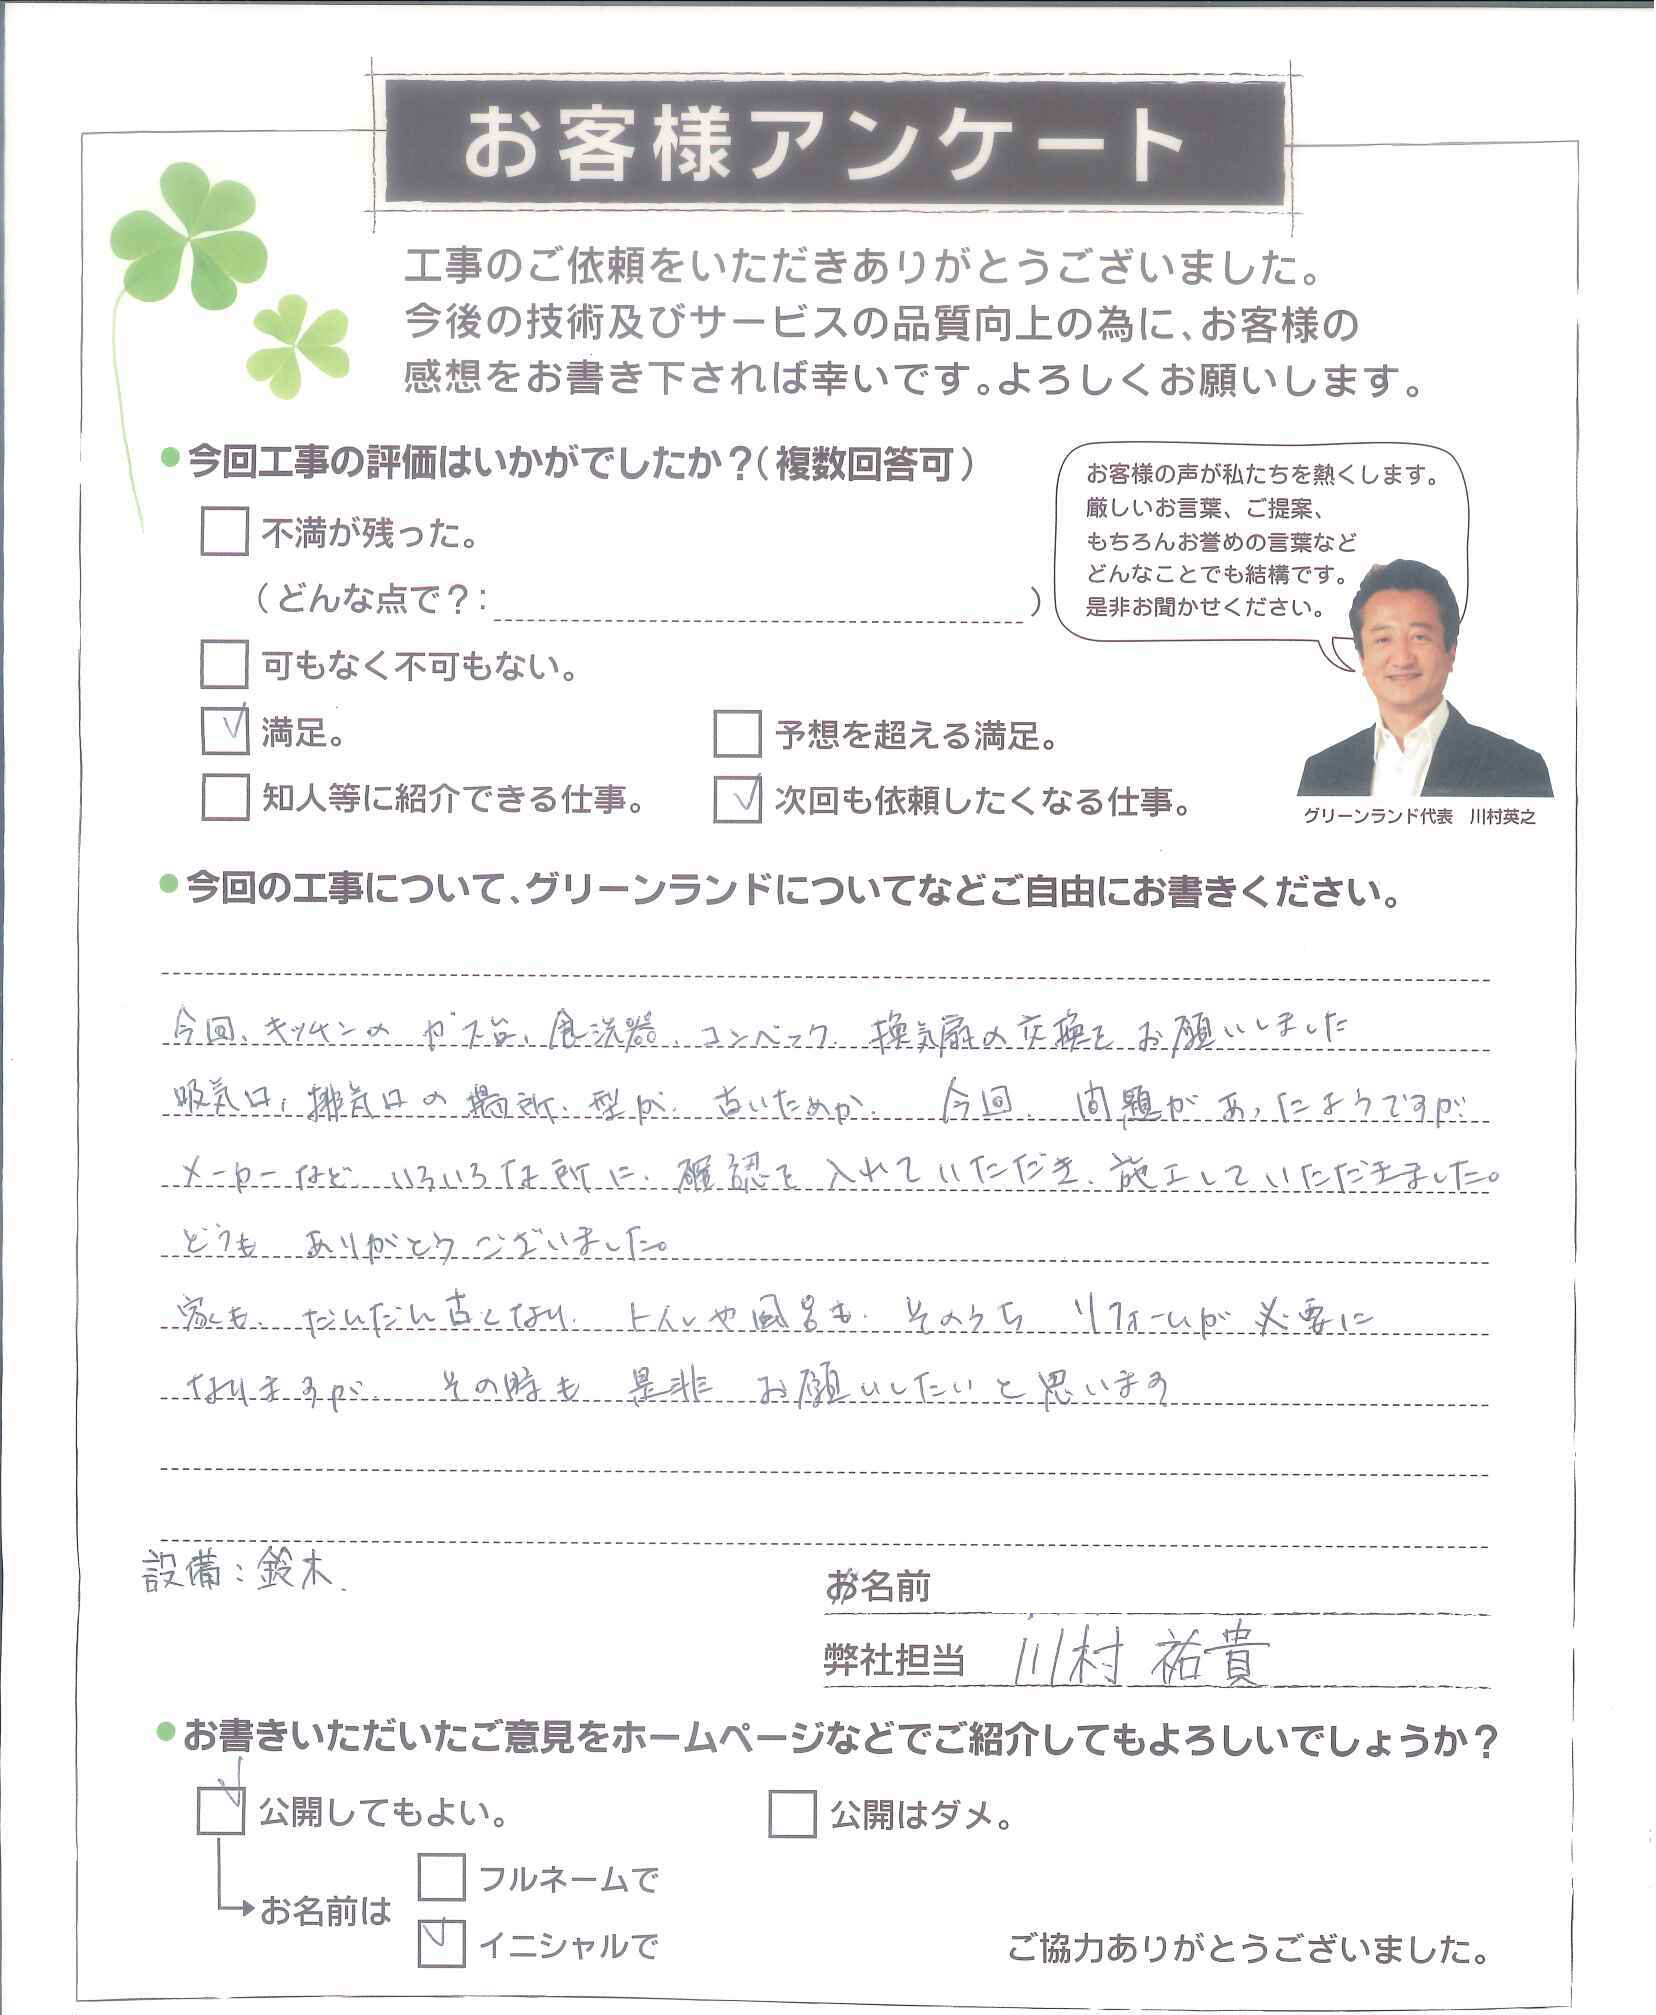 お客様アンケート
工事のご依頼をいただきありがとうございました。
今後の技術及びサービスの品質向上の為に、お客様の
感想をお書き下されば幸いです。よろしくお願いします。
今回工事の評価はいかがでしたか？（複数回答可）
不満が残った。
（どんな点で？：　）
可もなく不可もない。
満足。
予想を超える満足。
知人等に紹介できる仕事。
次回も依頼したくなる仕事。
お客様の声が私たちを熱くします。
厳しいお言葉、ご提案、
もちろんお誉めの言葉など
どんなことでも結構です。
是非お聞かせください。
グリーンランド代表　川村英之
今回の工事について、グリーンランドについてなどご自由にお書きください。
今回、キッチンの ガス台、食洗器、コンベック、換気扇の交換を お願いしました
吸気口、排気口の場所、型が、古いためか、今回、問題があったようですが
メーカーなど、いろいろな所に、確認を 入れていただき、施工していただきました。
どうも ありがとうございました。
家も、だんだん古くなり、トイレや風呂も、そのうち リフォームが 必要に
なりますが、その時も 是非 お願いしたいと思います
設備：鈴木.
お名前
弊社担当　川村 祐貴
お書きいただいたご意見をホームページなどでご紹介してもよろしいでしょうか？
公開してもよい。
公開はダメ。
お名前は
フルネームで
イニシャルで
ご協力ありがとうございました。